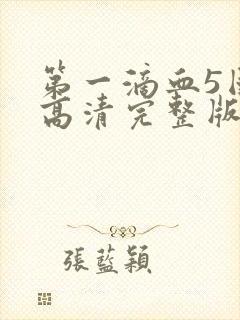 第一滴血5
高清完整版
張藍穎